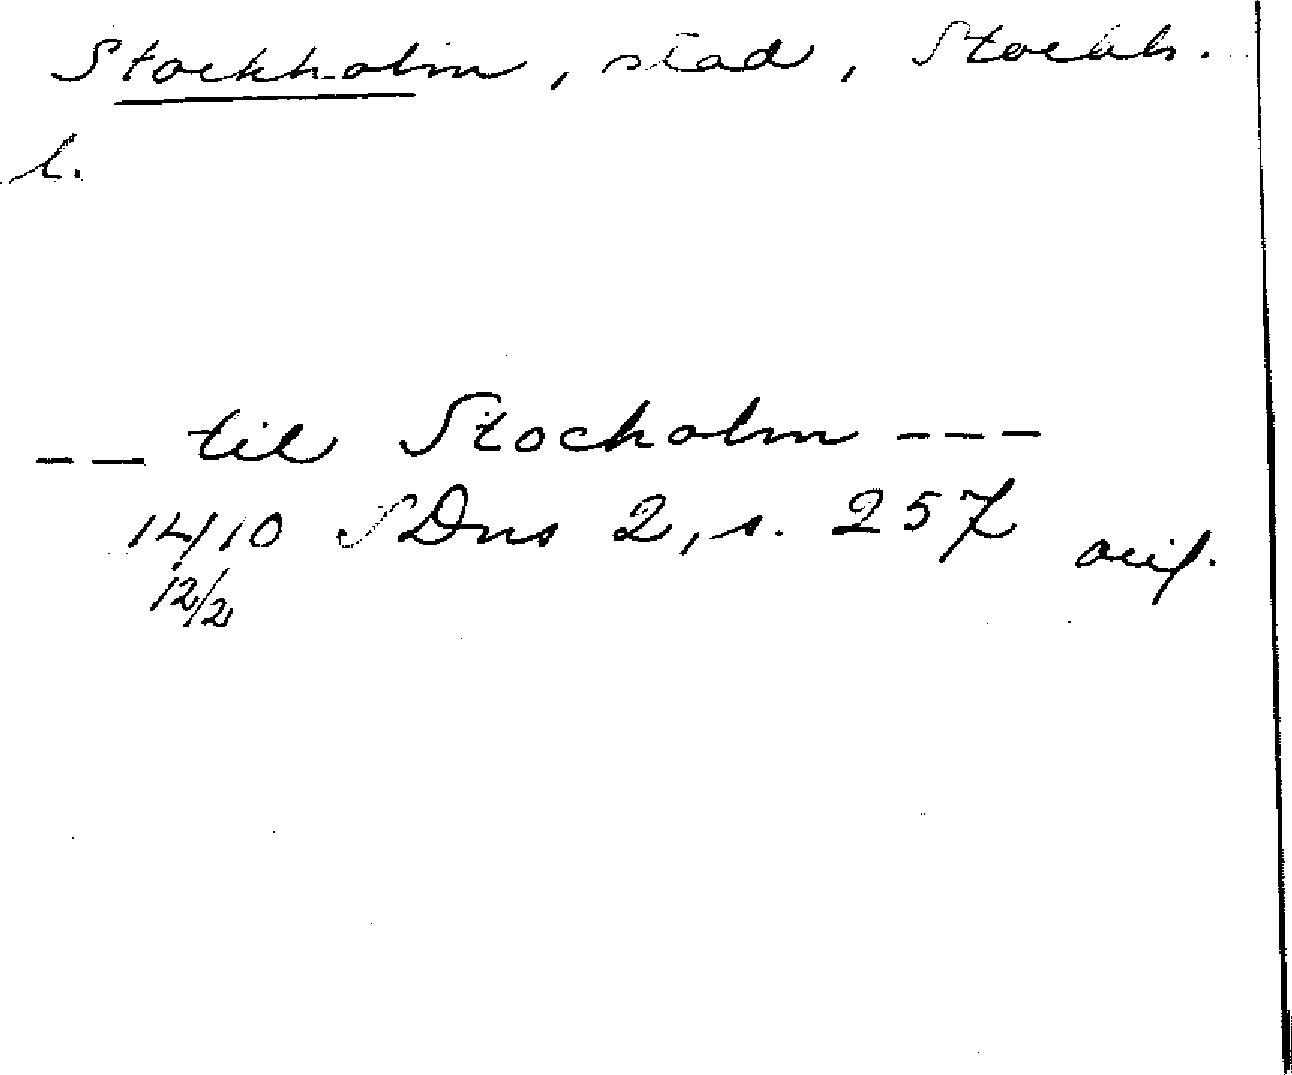 Stockholm, stad, Stockh.
l.
-- til Stocholm ---
1410 SDns 2, s. 257 orig.
12/2